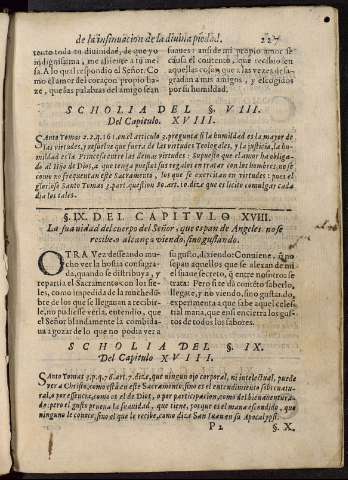 de la insinuacion de la diuina piedad. 227
tento toda tu diuinidad, de que yo
indignissima, me assiente a tu me-
sa. A lo qual respondio el Señor: Co
mo el amor del coraçon propio ha-
ze, que las palabras del amigo sean
suaues: assi de mi propio amor se
causa el contento, que recibo en
aquellas cosas, que a las vezes desa-
gradan a mis amigos, y escogidos
por su humildad.
SCHOLIA DEL §. VIII.
Del Capitulo XVIII.
Santo Tomas 2. 2. q. 161. en el articulo 5. pregunta si la humildad es la mayor de
las virtudes, y resuelue que fuera de las virtudes Teologales, y la justicia, la hu-
mildad es la Princesa entre las demas virtudes: Supuesto que el amor ha obliga-
do al Hijo de Dios, a que tenga puestas sus regalos en tratar con los hombres, no se
como no frequentan este Sacramento, los que se exercitan en virtudes: pues el
glorioso Santo Tomas 3. part. question 80. art. 10. dize que es licito comulgar cada
dia los tales.
§. IX. DEL CAPITVLO XVIII.
La suauidad del cuerpo del Señor, que es pan de Angeles no se
recibe o alcança viendo, sino gustando.
OTRA Vez desseando mu-
cho ver la hostia consagra-
da, quando se distribuya, y
repartia el Sacramento con los fie-
les, como impedida de la muchedū-
bre de los que se llegauan a recibir-
le, no pudiesse verla, entendio, que
el Señor blandamente la combida-
ua a gozar de lo que no podia ver a
su gusto, diziendo: Conuiene, q̃ no
sepan aquellos que se alexan de mi
el suaue secreto, q̃ entre nosotros se
trata: Pero si te da cōtēto, saberlo,
llegate, y no viendo, sino gustādo,
experimenta a que sabe aquel celes-
tial manà, que en si encierra los gu-
stos de todos los sabores.
SCHOLIA DEL §. IX.
Del Capitulo XVIII.
Santo Tomas 3. p. q. 76. art. 7. dize, que ningun ojo corporal, ni intelectual, puede
ver a Christo, como està en este Sacramento, sino es el entendimiento sobrenatu-
ral, o por essencia, como es el de Dios, o por participacion, como del bienauentura-
do: pero el gusto prueua la suauidad, que tiene, porque es el mana escondido, que
ninguno le conoce, sino el que le recibe, como dize San Iuan en su Apocalypsi.
P 2 §. X.